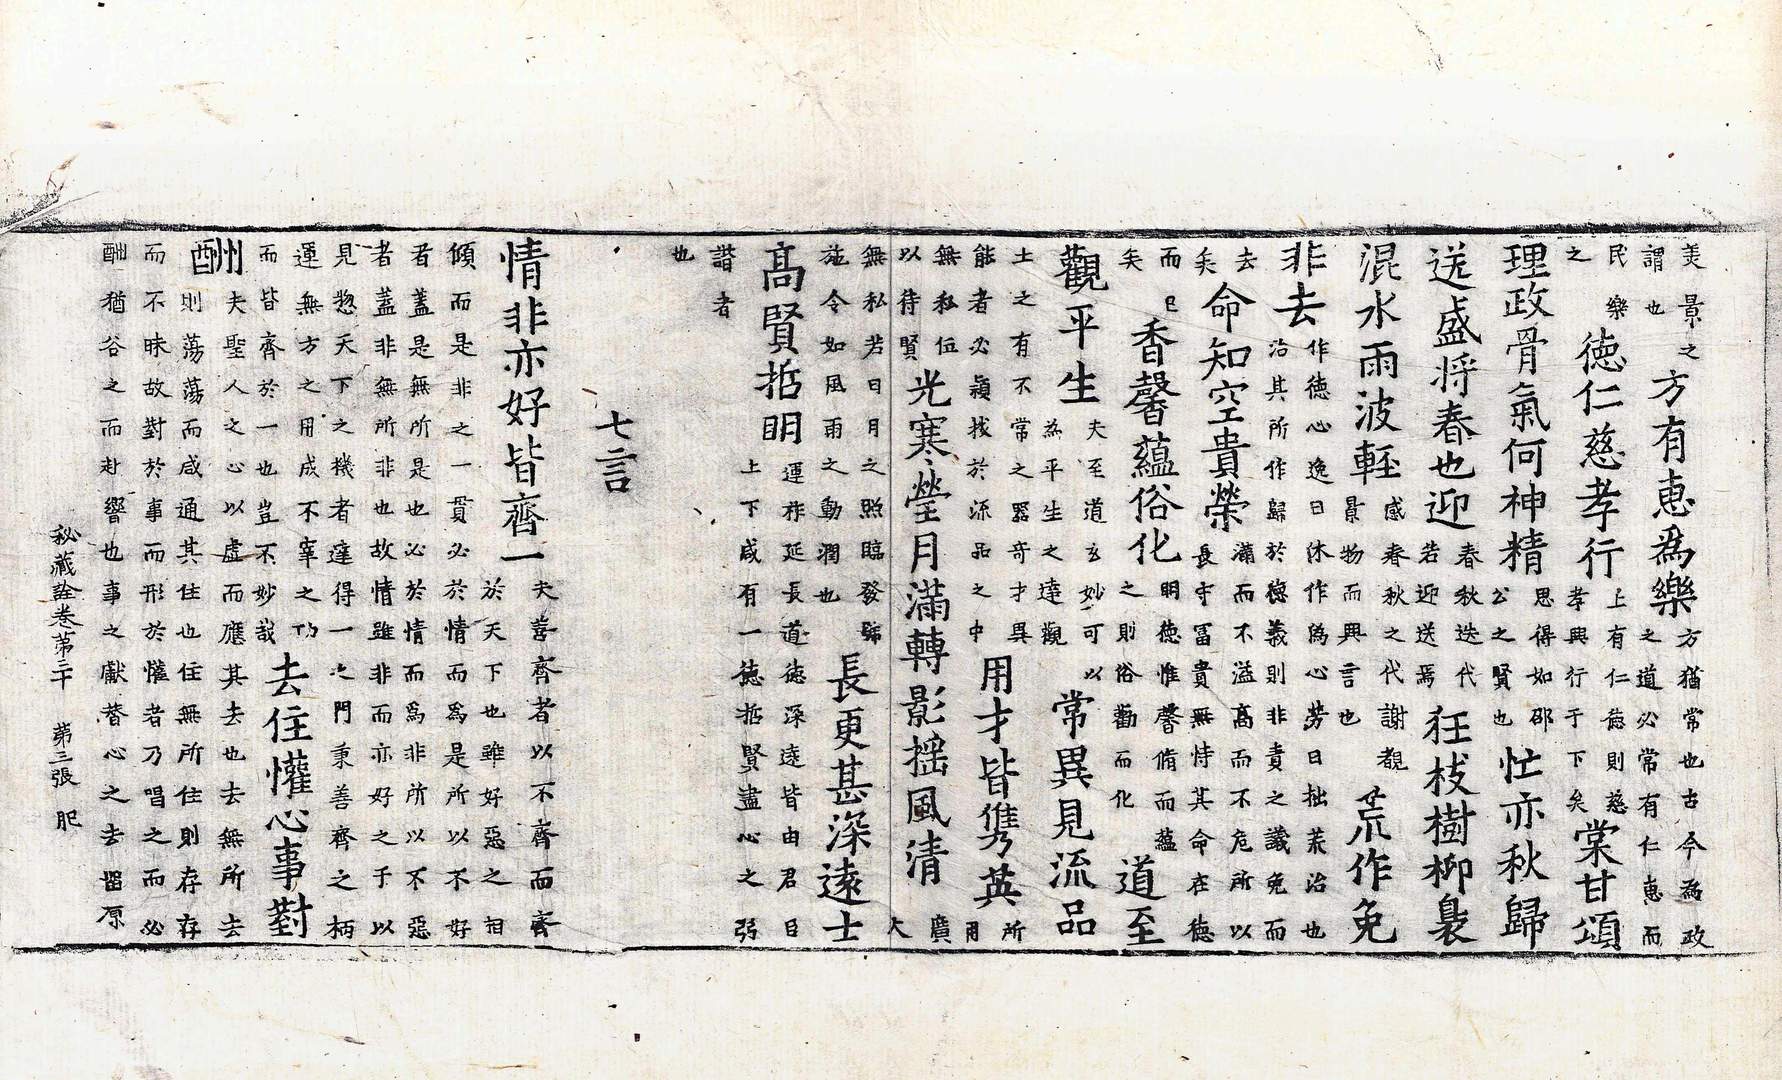 美景之
謂也
方有惠為樂
方猶常也古今為政
之道必常有仁惠而
民樂
之
德仁慈孝行
上有仁慈則慈
孝興行于下矣
棠甘頌
理政骨氣何神精
思得如邵
公之賢也
忙亦秋歸
送盛将春也迎
春秋迭代
若迎送焉
狂枝樹柳裊
混水雨波輕
感春秋之代謝覩
景物而興言也
荒作免
非去
作德心逸日休作僞心劳日拙荒治也
治其所作歸於德義則非責之議免而
去
矣
命知空貴榮
滿而不溢高而不危所以
長守冨貴無恃其命在德
而已
矣
香馨蘊俗化
明德惟馨脩而蘊
之則俗勸而化
道至
觀平生
夫至道玄妙可以
為平生之達觀
常異見流品
士之有不常之器奇才異
能者必穎找於流品之中
用才皆雋英
所
用
無私伍
以待賢
光寒瑩月滿轉影揺風清
廣
大
無私若日月之照臨發號
施令如風雨之動潤也
長更甚深遠士
高賢哲明
運祚延長道德深遠皆由君臣
上下咸有一德哲賢盡心之弼
諧者
也
七言
情非亦好皆齊一
夫善齊者以不齊而齊
於天下也雖好惡之相
傾而是非之一貫必於情而為是所以不好
者蓋是無所是也必於情而為非所以不惡
者蓋非無所非也故情雖非而亦好之于以
見惣天下之機者達得一之門秉善齊之柄
運無方之用成不宰之功
而皆齊於一也豈不妙哉
去住懽心事對
酬
夫聖人之心以虚而應其去也去無所去
則蕩蕩而咸通其住也住無所住則存存
而不昧故對於事而形於懽者乃唱之而必
酬猶谷之而赴響也事之獻替心之去留原
秘藏詮卷第二十 第三張 肥